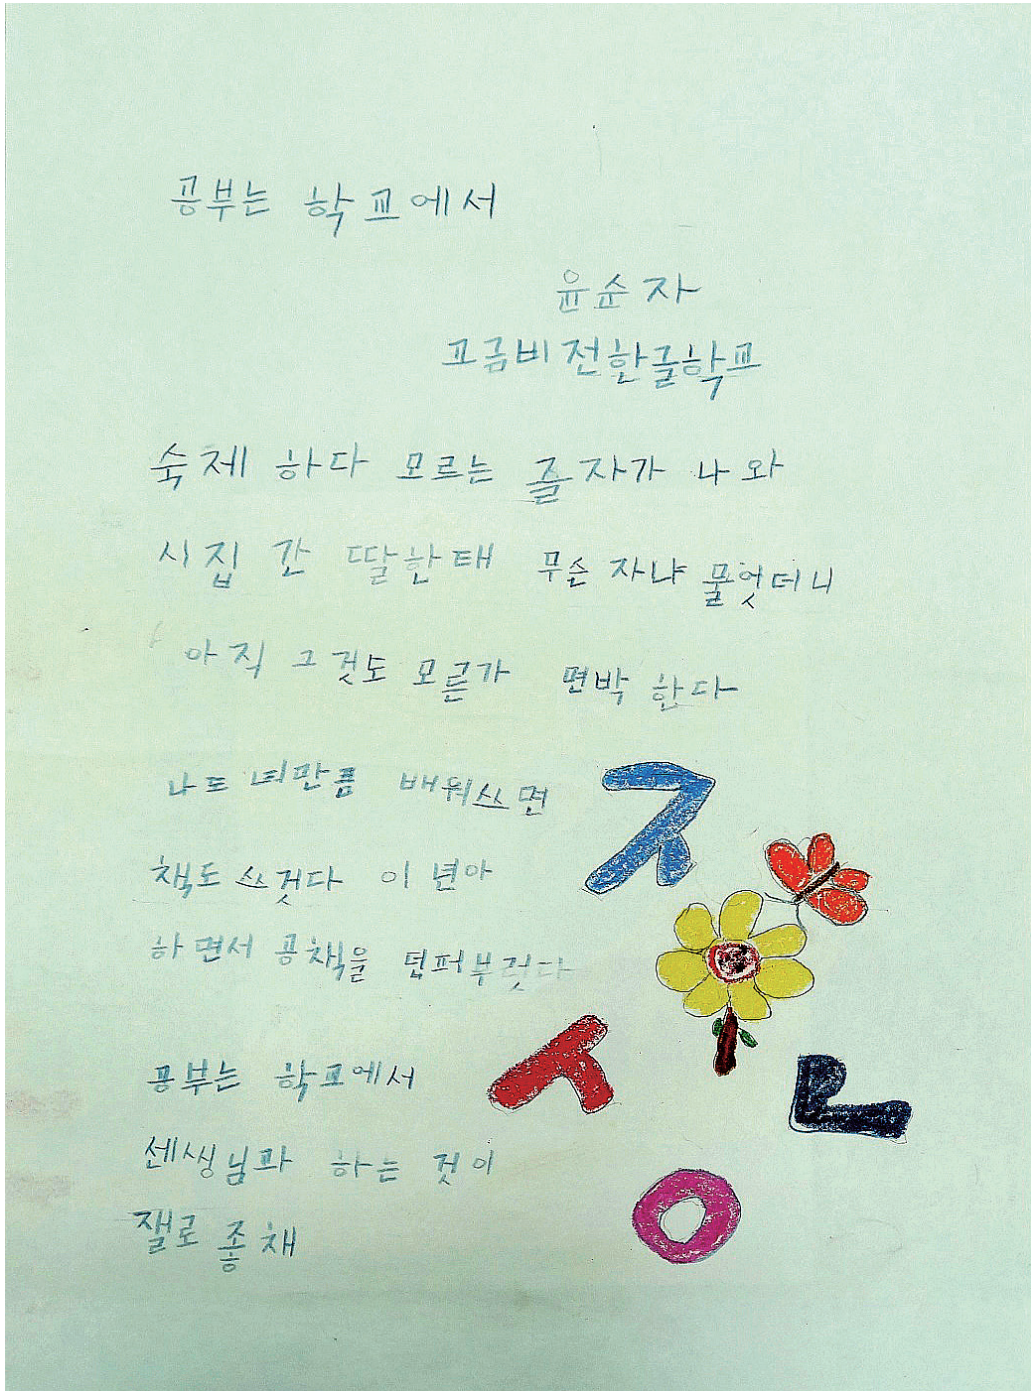 공부는 학교에서
윤순자
고금비전한글학교
숙제 하다 모르는 즐자가 나와
시집 간 딸한태 무슨 자냐 물엇더니
아직 그것도 모른가 면박 한다
나도 녀만큼 배워쓰면
책도 쓰것다 이 년아
하면서 공책을 덥퍼부럿다
공부는 학교에서
센싱님과 하는 것이
잴로 좋채
ㅈ
ㅅ
ㄴ
ㅇ